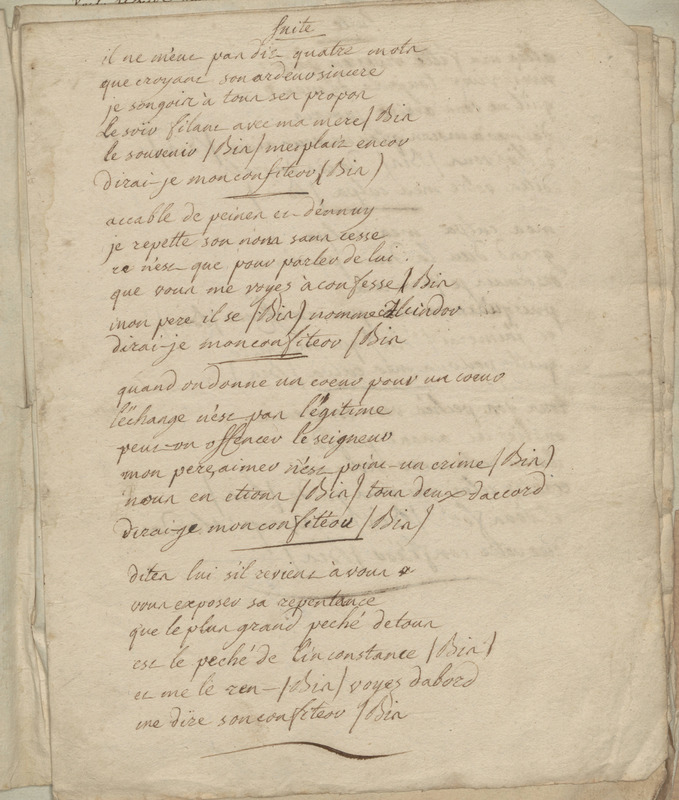 Suite
il ne m'eut pas dis quatre mots
que croyant son ardeur sincere
je songois à tous ses propos
le soir filant avec ma mere / Bis
le souvenir / Bis / me plait encor
dirai-je mon confiteor / Bis )
accablé de peines et d'ennuy
je repette son nom sans cesse
ce n'est que pour parler de lui .
que vous me voyes à confesse / Bis
mon pere il se / Bis ) nomme Alcindor
dirai-je mon confiteor / Bis
quand on donne un coeur pour un coeur
l'échange n'est pas légitime
peut-on offencer le seigneur
mon pere, aimer n'est point un crime / Bis )
nous en etions / Bis ) tous deux d'accord
dirai-je mon confitéor / Bis )
dites lui s'il revient à vous
vous exposer sa repentance
que le plus grand peché de tous
est le peché de l'inconstance / Bis )
et me le ren- / Bis / voyes d'abord
me dire son confiteor / Bis